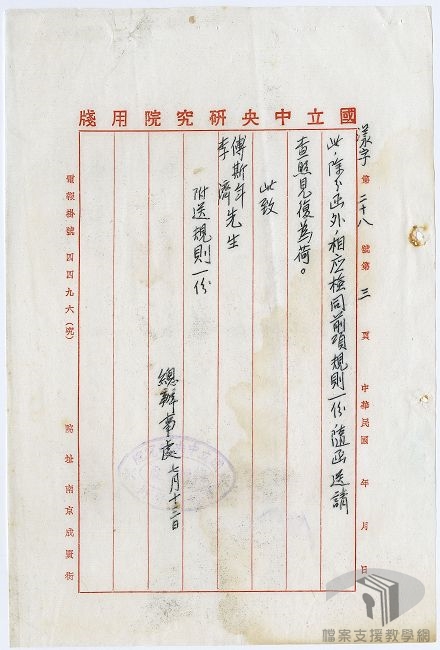 國立中央研究院用牋
漾字第二十八號第三頁 中華民國 年 月 日
此,除分函外,相应檢同前項規則一份,隨函送請
查照見復為荷。
此致
傅斯年
李濟先生
附送規則一份
總辦事處 七月十二日
電報掛號 四四九六(號)
院址 南京成賢街
檔案支援教學網